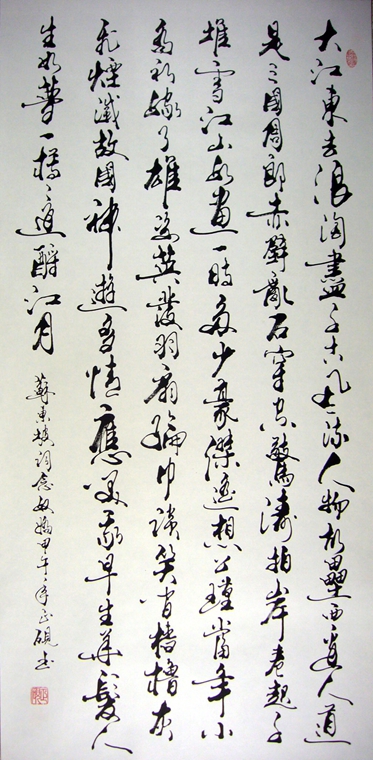 大江東去浪淘盡千古風流人物故壘西邊人道
是三國周郎赤壁亂石穿空驚濤拍岸卷起千
堆雪江山如畫一時多少豪傑遙想公瑾當年小
喬初嫁了雄姿英發羽扇綸巾談笑間檣櫓灰
飛煙滅故國神遊多情應笑我早生華髮人
生如夢一樽還酹江月
蘇東坡詞念奴嬌甲午年正硯书